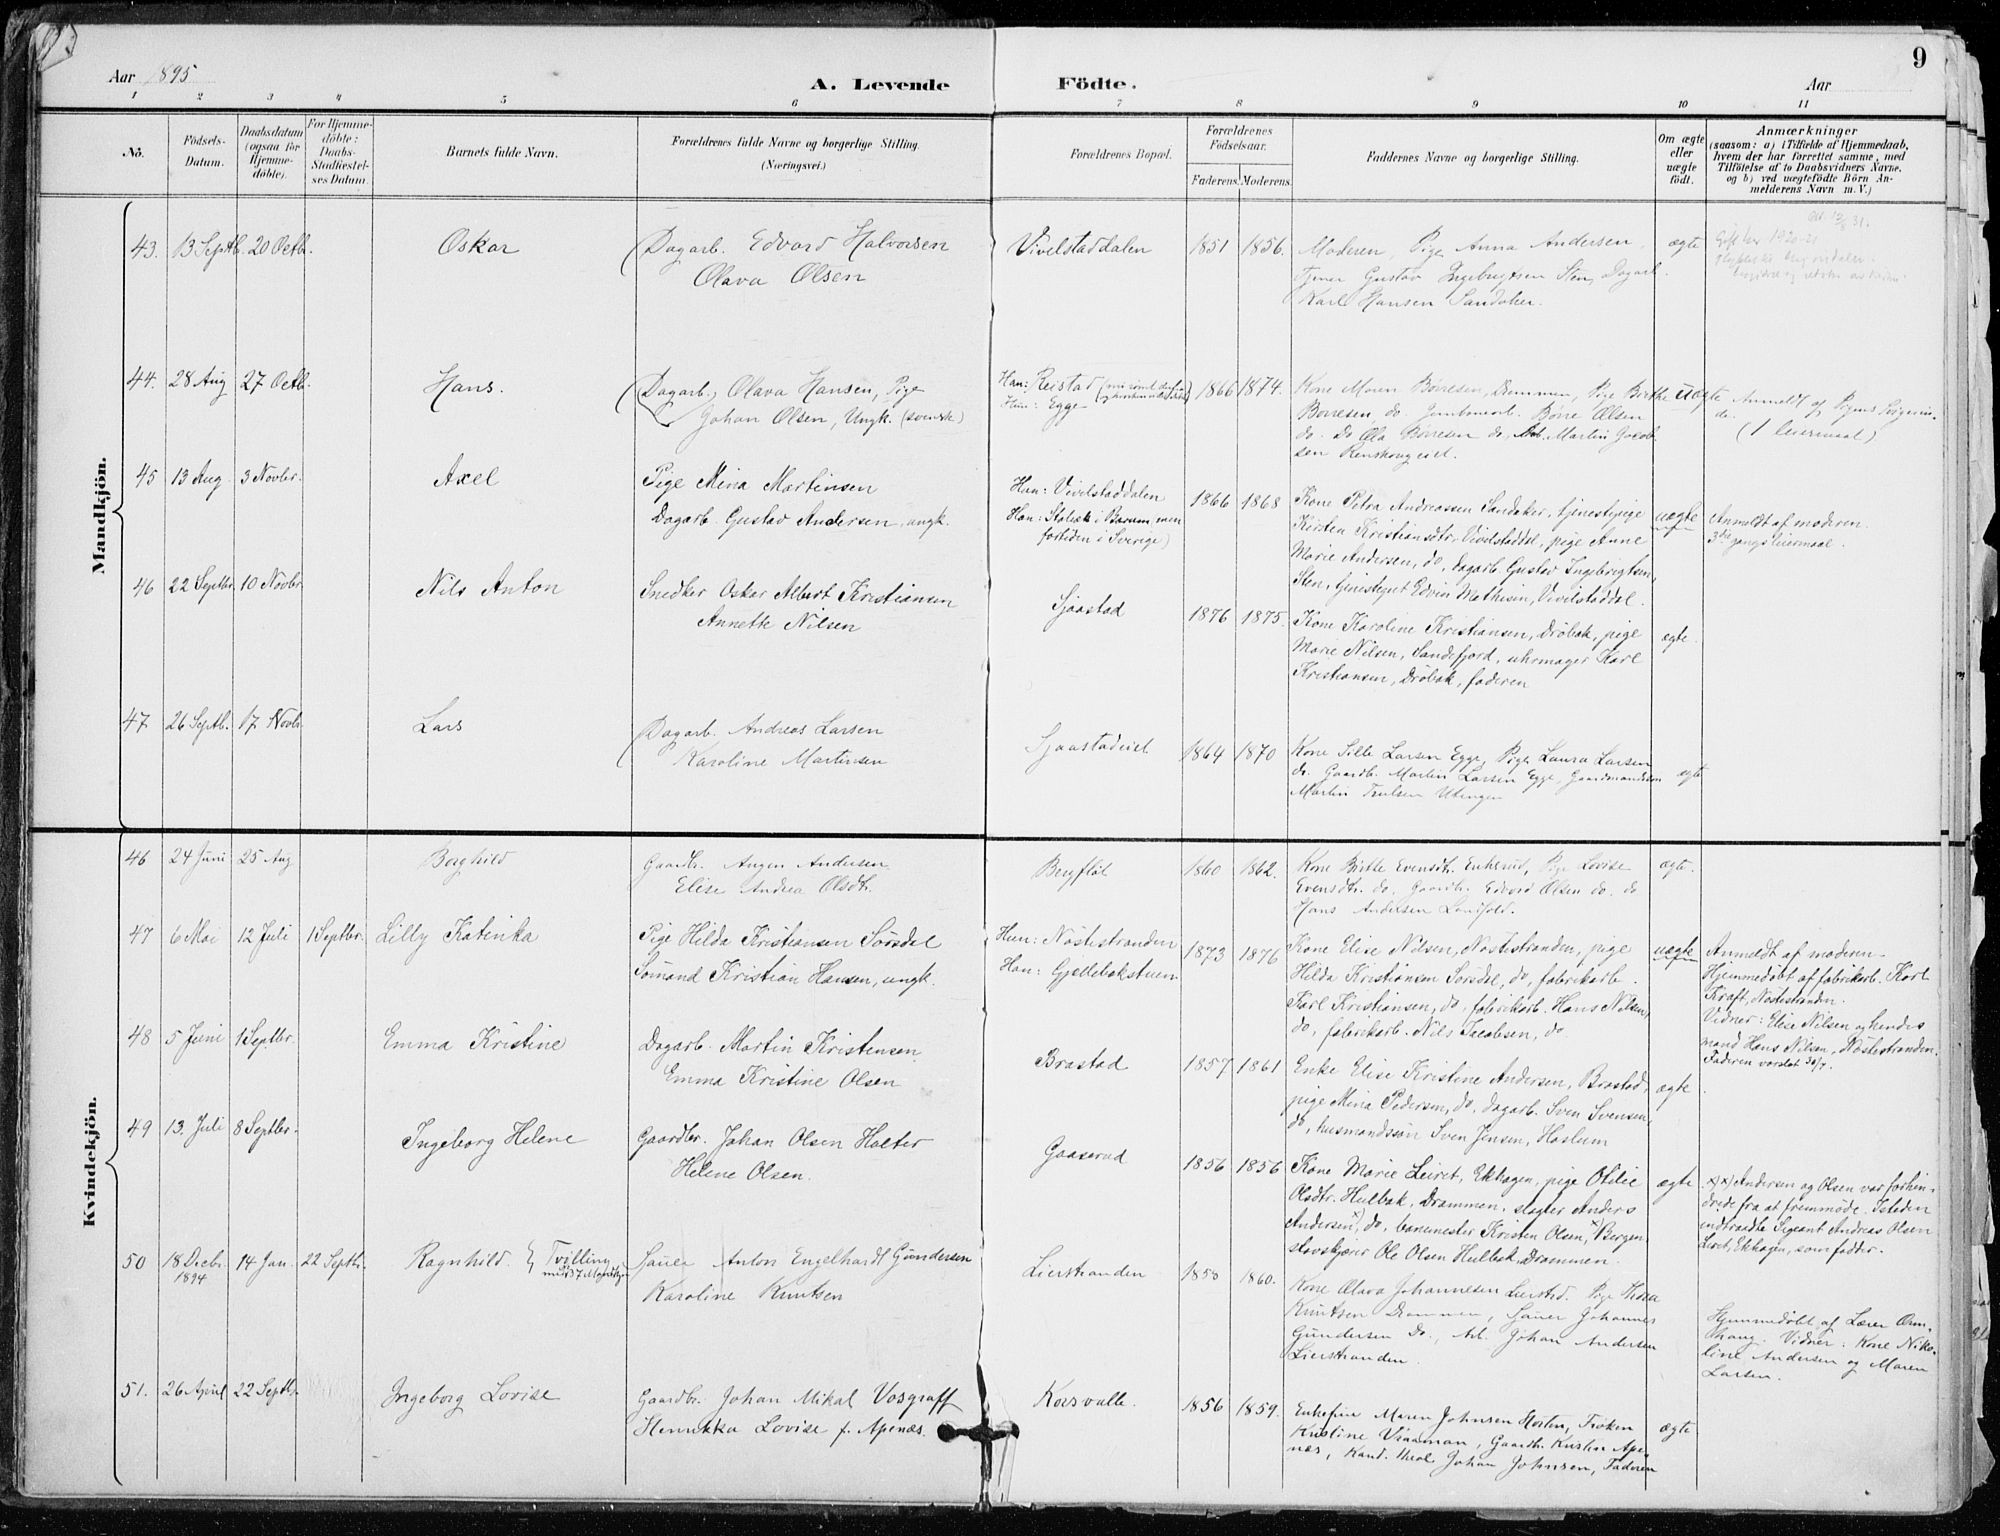 Aar 1895
A. Levende Födte.
Aar
9
1 2 3 4 5 6 7 8 9 10 11
No.
Födsels-Datum.
Daabsdatum (ogsaa for Hjemme-döbte).
For Hjemme-döbte: Daabs-Stadfæstel-ses Datum.
Barnets fulde Navn.
Forældrenes fulde Navne og borgerlige Stilling.
(Næringsvei.)
Forældrenes Bopæl.
Forældrenes Födselsaar.
Faderens. Moderens.
Faddernes Navne og borgerlige Stilling.
Om ægte eller uægte födt.
Anmærkninger
(saasom: a) i Tilfælde af Hjemmedaab,
hvem der har forrettet samme, med
Tilföielse af to Daabsvidners Navne,
og b) ved uægtefödte Börn An-
melderens Navn m. V.)
Mandkjön.
43. 13 Septb. 20 Octb. Oskar
Dagarb. Edvard Halvorsen
Olava Olsen
Vivelstaddalen 1851 1856.
Moderen, Pige Anna Andersen,
Tjener Gustav Ingebrigtsen Sten, Dagarb.
Karl Hansen Sandaker.
ægte
44. 28 Aug 27 Octb. Hans.
Dagarb. Olava Hansen, Pige
Johan Olsen, Ungk. (svensk)
Han: Reistad
Hun: Egge
1866 1874.
Kone Maren Börresen, Drammen, Pige Birthe
Börresen do. Börre Olsen
do. Do Ola Börresen do, Martin
uægte
Anmeldt af Pigens Svigerin-
de. (1 leiermaal)
45 13 Aug 3 Novbr. Axel
Pige Mina Martinsen
Dagarb. Gustav Andersen, ungk.
Hun: Vivelstaddalen
Han: Stabæk i Bærum, men
fortiden i Sverige)
1866 1868
Kone Petra Andreassen Sandaker, tjenestepige
Kirsten Kristiansdtr, Vivelstaddal, pige Anne
Marie Andersen, do, dagarb. Gustav Ingebrigtsen,
Sten, tjenestegut Edvin Mathisen, Vivelstaddal.
uægte
Anmeldt af moderen.
3die gangs leiermaal.
46 22 Septbr. 10 Novbr. Nils Anton
Snedker Oskar Albert Kristiansen
Annette Nilsen
Sjaastad 1876 1875.
Kone Karoline Kristiansen, Dröbak, pige
Marie Nilsen, Sandefjord, uhrmager Karl
Kristiansen, Dröbak, faderen
ægte.
47 26 Septb. 17 Novbr. Lars
Dagarb. Andreas Larsen
Karoline Martinsen
Sjaastadeiet 1864 1870
Kone Sille Larsen Egge, Pige Laura Larsen
do. Gaardb. Martin Larsen Egge, Gaardmandssøn
Martin Trulsen Utengen
ægte
Kvindekjön.
46 24 Juni 25 Aug Borghild
Gaardbr. Augen Andersen
Elise Andrea Olsdt.
Bergflöt 1860 1862.
Kone Birthe Evensdt. Enkerud, Pige Lovise
Evensdtr. do, Gaardb. Edvard Olsen do. do
Hans Andersen
ægte.
47 6 Mai 12 Juli 1 Septbr. Lilly Katinka
Pige Hilda Kristiansen Sørsdal
Sømand Kristian Hansen, ungk.
Hun: Nøstestranden
Han: Gjellebækstuen
1873 1876
Kone Elise Nilsen, Nøstestranden, pige
Hilda Kristiansen Sørsdal, do, fabrikarb.
Karl Kristiansen, do, fabrikarb. Hans Nilsen,
do, fabrikarb. Nils Jacobsen, do
uægte
Anmeldt af moderen.
Hjemmedøbt af fabrikarb. Karl
Kraft, Nøstestranden.
Vidner: Elise Nilsen og hendes
mand Hans Nilsen, Nøstestranden.
Faderen varslet 30/7.
48 5 Juni 1 Septbr. Emma Kristine
Dagarb. Martin Kristensen
Emma Kristine Olsen
Brastad 1857 1861
Enke Elise Kristine Andersen, Brastad,
pige Mina Pedersen, do, dagarb. Sven Svensen,
do, husmandssøn Sven Jensen, Haslum
ægte
49 13. Juli 8 Septbr. Ingeborg Helene
Gaardbr. Johan Olsen Holter
Helene Olsen.
Gaaserud 1856 1856
Kone Marie Leiret, Ekhagen, pige Otilie
Olsdtr. Hulbak, Drammen, slagter Anders
Andersen x), do, banemester Kristen Olsen, x) Bergen
slovskjører Ole Olsen Hulbak, Drammen.
ægte
x) x) Andersen og Olsen var forhin-
drede fra at fremmøde. Isteden
indtraadte Sergeant Andreas Olsen
Leiret, Ekhagen, som fadder.
50 18 Decbr. 1894 14 Jan. 22 Septbr. Ragnhild } Tvilling
med 37 Mandkjøn
Sauer Anton Engelhardt Gundersen
Karoline Knutsen
Lierstranden 1858 1860.
Kone Olava Johannesen Lierstrd. Pige Thora
Knutsen Drammen, Sauer Johannes
Gundersen Do., Arb. Johan Andersen
Lierstranden.
Hjemmedøbt af Lærer Orm-
haug. Vidner: Kone Niko-
line Andersen og Maren
Larsen.
51. 26 April 22 Septbr. Ingeborg Lovise
Gaardbr. Johan Mikal Vosgraff
Henrikka Lovise f. Apenæs.
Korsvalle. 1856 1859.
Enkefru Maren Johnsen Horten, Frøken
Kristine Viaaman, Gaardb. Kristen Ape-
næs, Kand. theol Johan Johnsen, Faderen
ægte